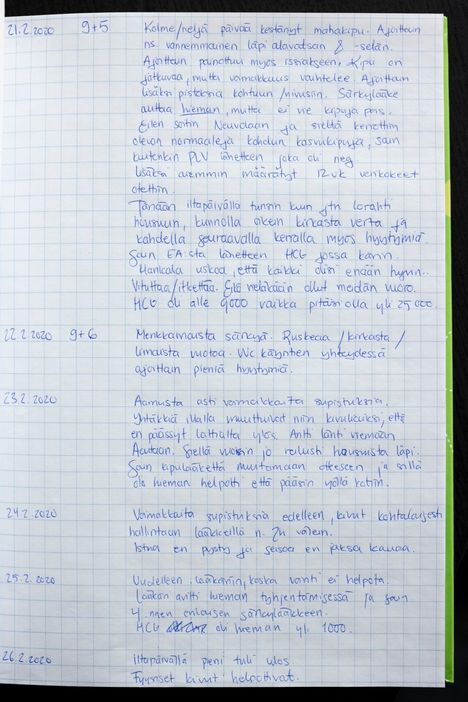 21.2.2020 9+5 Kolme/neljä päivää kestänyt mahakipu. Ajoittain
ns. vanremmainen läpi alavatsan & -selän.
Ajoittain painottuu myös issiakseen. Kipu on
jatkuvaa, mutta voimakkuus vaihtelee. Ajoittain
lisäksi pistoksia kohtuun/nivusiin. Särkylääke
auttaa hieman, mutta ei vie kipuja pois.
Eilen soitin Neuvolaan ja sieltä kerrottiin
olevan normaaleja kohdun kasvukipuja, sain
kuitenkin PLV lähetteen joka oli neg.
lisäksi aiemmin määrätyt 12vk verikokeet
otettiin.
Tänään iltapäivällä tunsin kuin jtn lorahti
housuun, kunnolla oikein kirkasta verta ja
kahdella seuraavalla kerralla myös hyytymiä.
Sain EA:sta lähetteen HCG jossa kävin
Hankala uskoa, että kaikki olisi enään hyvin..
Vituttaa/itkettää. Eikö neljäskään ollut meidän vuoro.
HCG oli alle 9000 vaikka pitäisi olla yli 25 000.
22.2.2020 9+6 Menkkamaista särkyä. Ruskeaa/kirkasta/
limaista vuotoa. Wc käyntien yhteydessä
ajoittain pieniä hyytymiä.
23.2.2020 Aamusta asti voimakkaita supistuksia.
Yhtäkkiä illalla muuttuivat niin kivuliaiksi, että
en päässyt lattialta ylös. Antti lähti viemään
Acutaan. Siellä vuosin jo reilusti housuista läpi.
Sain kipulääkettä muutamaan otteeseen ja sillä
oli hieman helpotti että pääsin yöllä kotiin.
24.2.2020 Voimakkaita supistuksia edelleen, kivut kohtalaisesti
hallintaan lääkkeillä n. 2h välein.
Istua en pysty ja seisoa en jaksa kauaa.
25.2.2020 Uudelleen lääkäriin, koska vointi ei helpota.
Lääkäri auttoi hieman tyhjentämisessä ja sain
4 päivän erilaisen särkylääkkeen.
HCG oli hieman yli 1000.
26.2.2020 Iltapäivällä pieni tuli ulos.
Fyysiset kivut helpottivat.